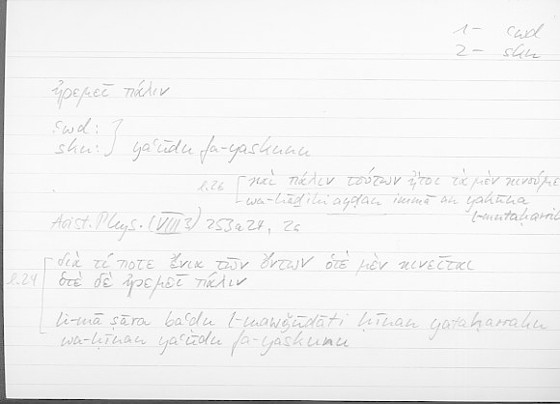 1 – ʿwd
2 – skn
ἠρεμεῖ πάλιν
ʿwd:
skn: } yaʿūdu fa-yaskunu
l.26 [καὶ πάλιν τούτων ἤτοι τὰ μὲν κινούμε
wa-hāḏihi ayḍan immā an yakūna
l-mutaḥarrik
Arist. Phys. (VIII 3) 253a24, 26
l.24 [διὰ τί ποτε ἔνια τῶν ὄντων ὁτὲ μὲν κινεῖται
ὁτὲ δὲ ἠρεμεῖ πάλιν
li-mā ṣāra baʿḍu l-mawǧūdāti ḥīnan yataḥarraku
wa-ḥīnan yaʿūdu fa-yaskunu